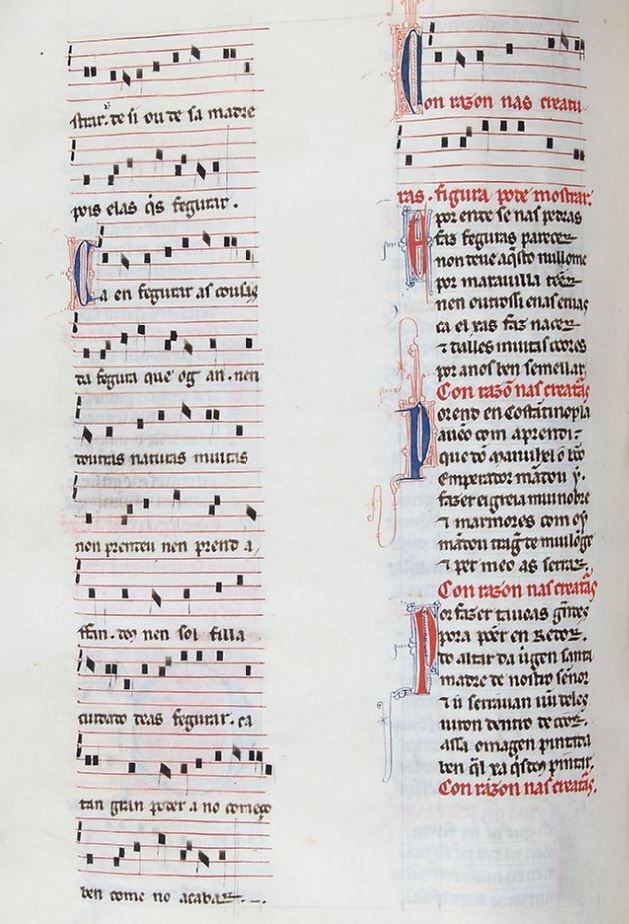 strar. de si ou de sa madre
pois elas q̇s fegurar.
Ca en fegurar as cousas
da fegura que og an. nen
doutras naturas muitas
non prenteu nen prend a,
ffan. doy nen sol filla
cuidado deas fegurar. ca
tan gran poder a no começo
ben come no acabar.
Con razon nas creatu
ras. figura pode mostrar.
por ende se nas pedras
faz feguras parecer
non deue aq̇sto null ome
por marauilla
nen outrossi enas
ca el xas faz nacer
⁊ dalles muitas coores
por a nos ben semellar
Con razõ nas creaturas
Porend en Costãtinopla
aueo com aprendi:
que dõ Manuhel o bõo
Emperador mãdou y.
fazer eigreia mui nobre
⁊ marmores com oy
mãdou trag̃ de mui lõge
⁊ per meo as serrar.
Con razon nas creaturas
Por fazer tauoas
pora põer en redor.
do altar da uirgen santa
madre de nostro señor
⁊ u serrauan
uiron dentro
assa omagen pintada
ben q̇l xa q̇s doy pintar.
Con razon nas creaturas.